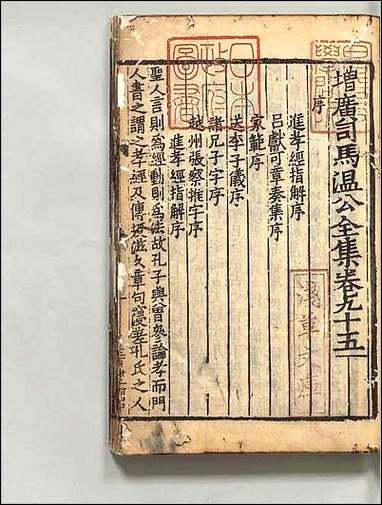 增廣司馬温公全集卷九十五
序
進孝經指解序
吕獻可章奏集序
家範序
送李子儀序
諸兄子字序
越州張察推字序
進孝經指解序
聖人言則為經動則為法故孔子與曾參論孝而門
人書之謂之孝經及傳授滋久章句寖孝孔氏之人
日本
政府
圖書
淺草文庫